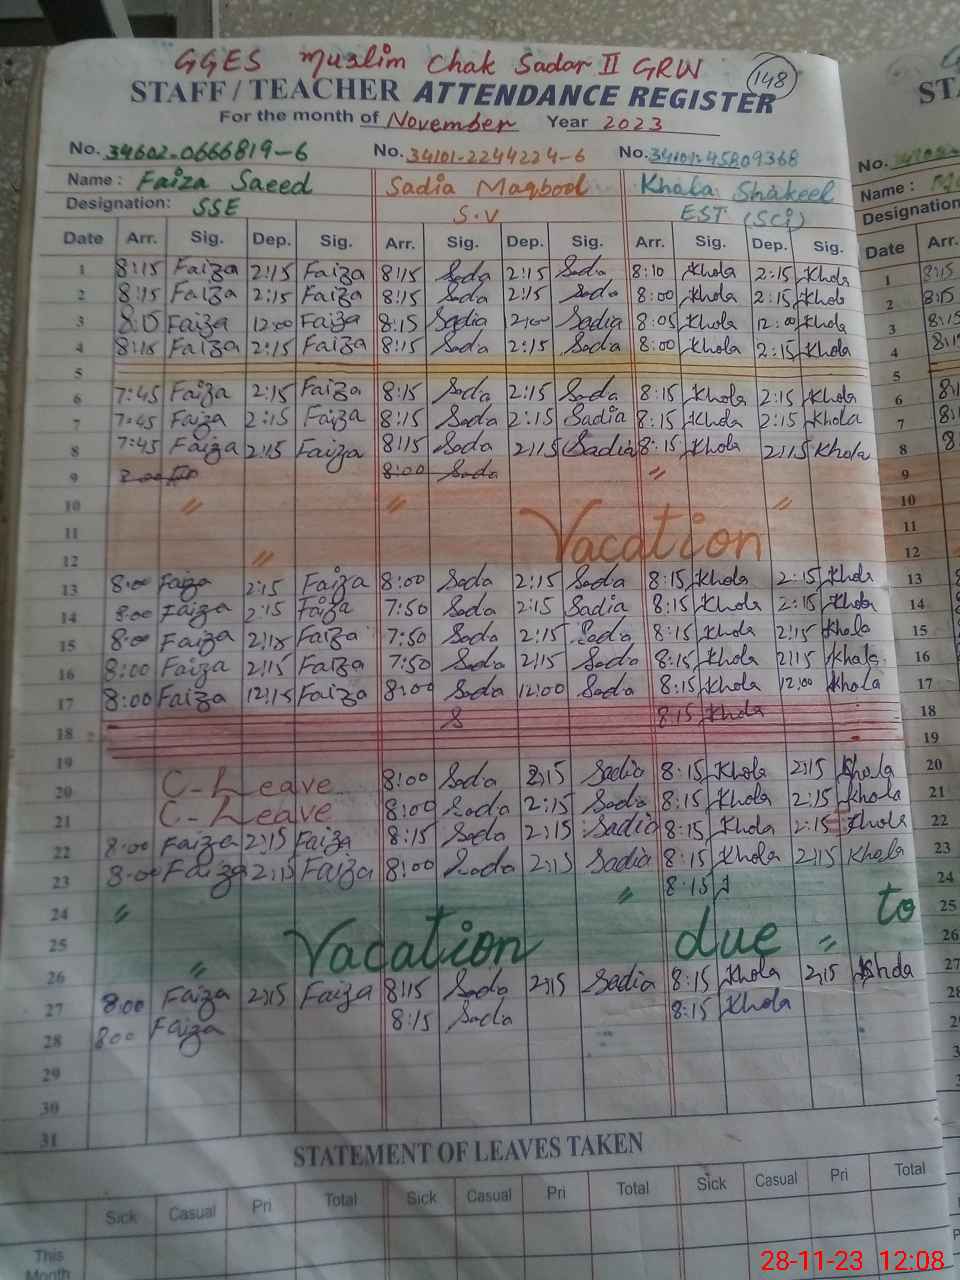 GGES Muslim Chak Sadar II GRW
148
STAFF / TEACHER ATTENDANCE REGISTER
For the month of November Year 2023
No. 34602-0666819-6 No. 34101-2244224-6 No. 34101-45809368
Name : Faiza Saeed Sadia Maqbool Khola Shakeel
Designation: SSE S.V EST (Sci)
Date Arr. Sig. Dep. Sig. Arr. Sig. Dep. Sig. Arr. Sig. Dep. Sig.
1 8:15 Faiza 2:15 Faiza 8:15 Sada 2:15 Sada 8:10 Khola 2:15 Khola
2 8:15 Faiza 2:15 Faiza 8:15 Sada 2:15 Sada 8:00 Khola 2:15 Khola
3 8:15 Faiza 12:00 Faiza 8:15 Sadia 12:00 Sadia 8:05 Khola 12:00 Khola
4 8:15 Faiza 2:15 Faiza 8:15 Sada 2:15 Sada 8:00 Khola 2:15 Khola
5
6 7:45 Faiza 2:15 Faiza 8:15 Sada 2:15 Sada 8:15 Khola 2:15 Khola
7 7:45 Faiza 2:15 Faiza 8:15 Sada 2:15 Sadia 8:15 Khola 2:15 Khola
8 7:45 Faiza 2:15 Faiza 8:15 Sada 2:15 Sadia 8:15 Khola 2:15 Khola
9 8:00 Sada "
10 " " "
11 Vacation
12 "
13 8:00 Faiza 2:15 Faiza 8:00 Sada 2:15 Sada 8:15 Khola 2:15 Khola
14 8:00 Faiza 2:15 Faiza 7:50 Sada 2:15 Sadia 8:15 Khola 2:15 Khola
15 8:00 Faiza 2:15 Faiza 7:50 Sada 2:15 Sada 8:15 Khola 2:15 Khola
16 8:00 Faiza 2:15 Faiza 7:50 Sada 2:15 Sada 8:15 Khola 2:15 Khola
17 8:00 Faiza 12:15 Faiza 8:00 Sada 12:00 Sada 8:15 Khola 12:00 Khola
18 S 8:15 Khola
19
20 C-Leave 8:00 Sada 2:15 Sadia 8:15 Khola 2:15 Khola
21 C-Leave 8:00 Sada 2:15 Sada 8:15 Khola 2:15 Khola
22 8:00 Faiza 2:15 Faiza 8:15 Sada 2:15 Sadia 8:15 Khola 2:15 Khola
23 8:00 Faiza 2:15 Faiza 8:00 Sada 2:15 Sadia 8:15 Khola 2:15 Khola
24 " " 8:15
25 Vacation due " to
26 "
27 8:00 Faiza 2:15 Faiza 8:15 Sada 2:15 Sadia 8:15 Khola 2:15 Khola
28 8:00 Faiza 8:15 Sada 8:15 Khola
29
30
31
STATEMENT OF LEAVES TAKEN
Sick Casual Pri Total Sick Casual Pri Total Sick Casual Pri Total
This Month
ST
No.
Name :
Designation
Date Arr.
1 8:15
2 8:15
3 8:15
4
5
6
7
8
9
10
11
12
13
14
15
16
17
18
19
20
21
22
23
24
25
26
27
28-11-23 12:08